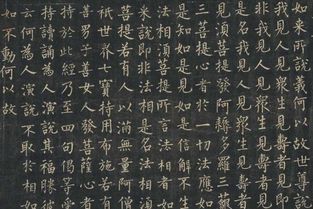 如來所說義何以故世尊說
我見人見衆生見壽者見即
非我見人見衆生見壽者見
是名我見人見衆生見壽者
見須菩提發阿耨多羅三藐
三菩提心者於一切法應如
是知如是見如是信解不生
法相須菩提所言法相者如
來說即非法相是名法相須
菩提若有人以滿無量阿僧
祇世界七寶持用布施若有
善男子善女人發菩薩心者
持於此經乃至四句偈等受
持讀誦為人演說其福勝彼
云何為人演說不取於相如
如不動何以故